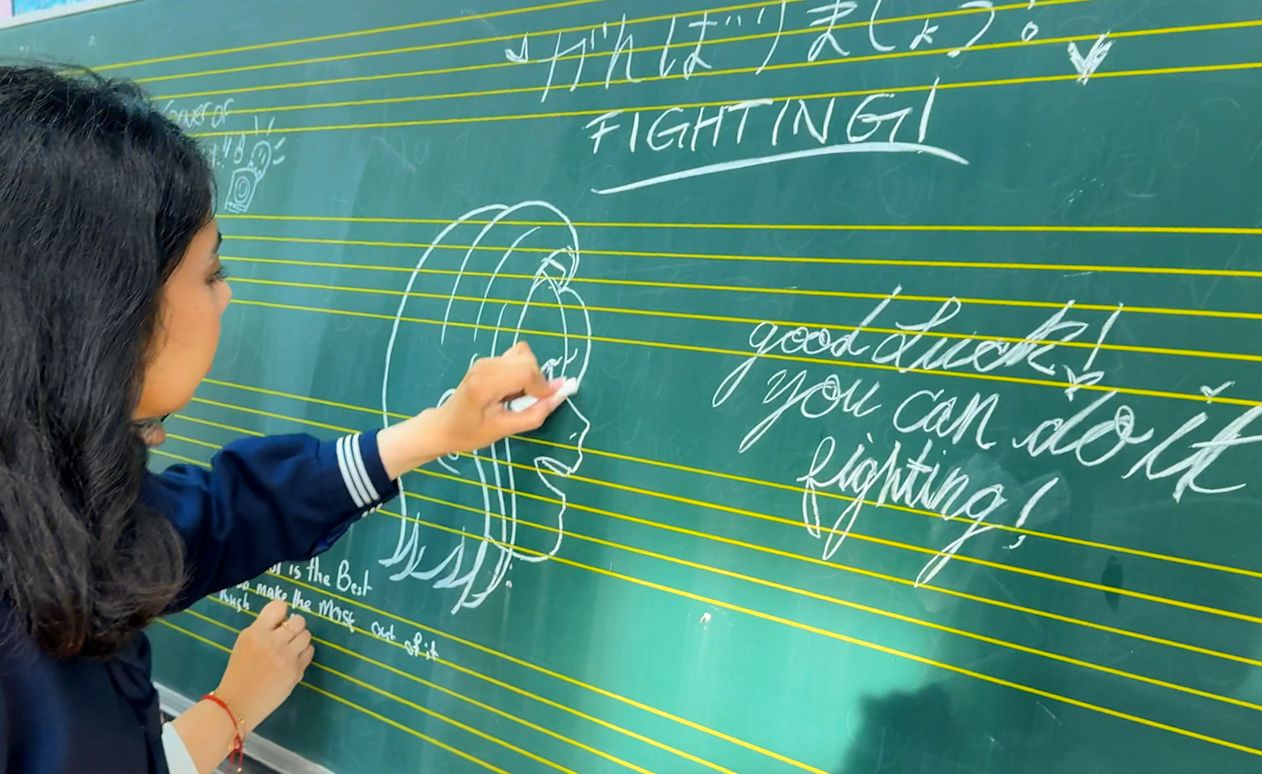 がんばりましょう!
FIGHTING!
good Luck!
you can do it
fighting!
is the Best
make the most out of it